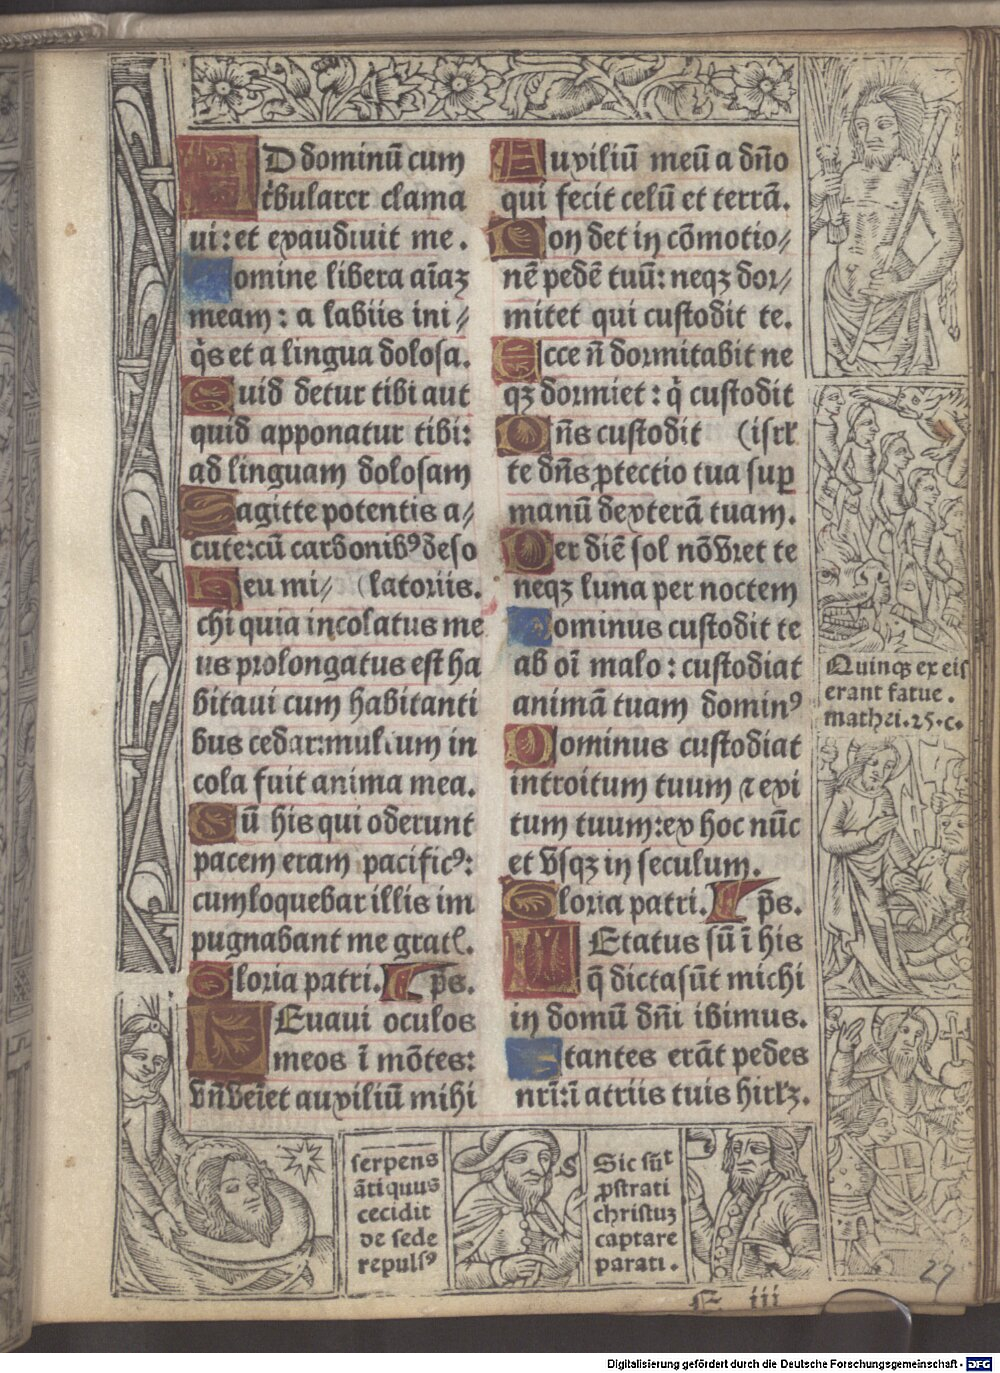 AD dominū cum
tribularer clama
ui: et exaudiuit me.
Domine libera aīaz
meam: a labiis ini/
q̄s et a lingua dolosa.
Quid detur tibi aut
quid apponatur tibi:
ad linguam dolosam
Sagitte potentis a/
cute: cū carbonibꝰ deso
Heu mi/ (latoriis.
chi quia incolatus me
us prolongatus est ha
bitaui cum habitanti
bus cedar: multum in
cola fuit anima mea.
Cū his qui oderunt
pacem eram pacificꝰ:
cum loquebar illis im
pugnabant me gratl̄.
Gloria patri. p̄s.
LEuaui oculos
meos ī mōtes:
vn̄ veīet auxiliū mihi
Auxiliū meū a dn̄o
qui fecit celū et terrā.
Non det in cōmotio/
nē pedē tuū: neqꝫ dor/
mitet qui custodit te.
Ecce n̄ dormitabit ne
qꝫ dormiet: q̄ custodit
Dn̄s custodit (isrl
te dn̄s ꝓtectio tua suꝑ
manū dexterā tuam.
Per diē sol nō vret te
neqꝫ luna per noctem
Dominus custodit te
ab oī malo: custodiat
animā tuam dominꝰ
Dominus custodiat
introitum tuum ⁊ exi
tum tuum: ex hoc nūc
et vsqꝫ in seculum.
Gloria patri. p̄s.
LEtatus sū ī his
q̄ dicta sūt michi
in domū dn̄i ibimus.
Stantes erāt pedes
nr̄i: ī atriis tuis hirlꝫ.
Quinqꝫ ex eis
erant fatue.
mathei. 25. c.
serpens
āti quus
cecidit
de sede
repulsꝰ
Sic sūt
ꝓstrati
christuꝫ
captare
parati.
27
F iii
Digitalisierung gefördert durch die Deutsche Forschungsgemeinschaft - DFG